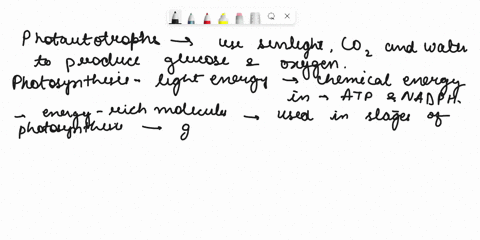 Photautotrophs → use sunlight, CO2 and water
to produce glucose & oxygen.
Photosynthesis - light energy → chemical energy
in → ATP & NADPH.
→ energy-rich molecule → used in stages of
photosynthesis → g